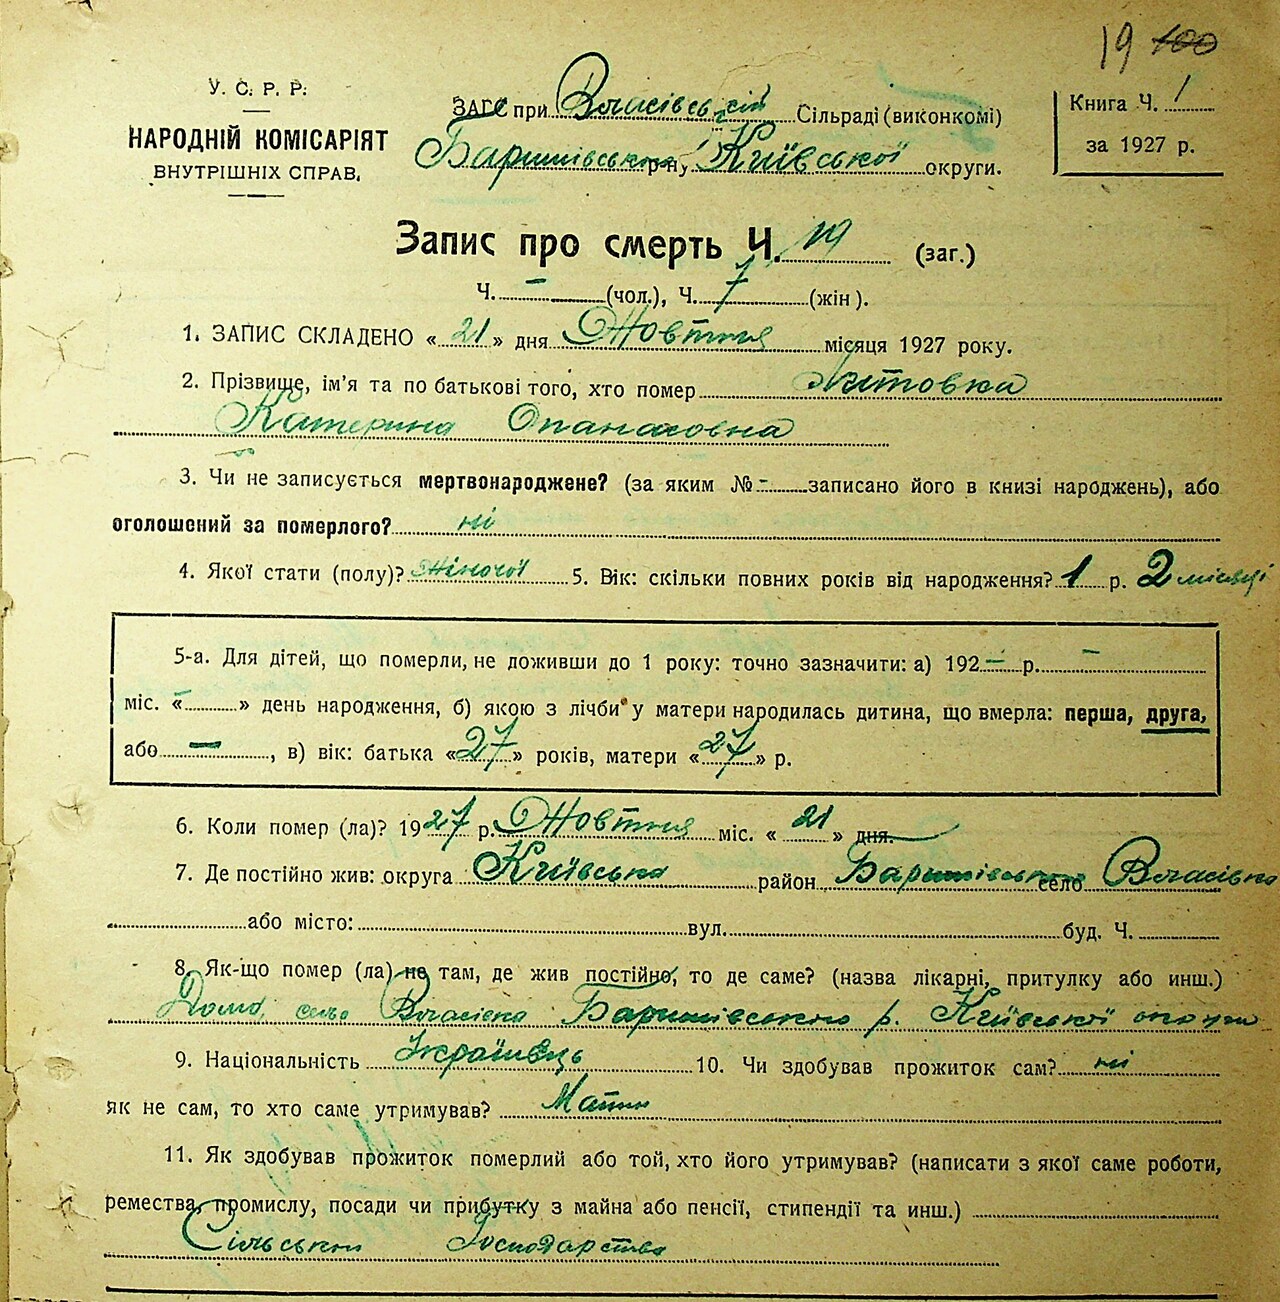 19 100
У. С. Р. Р.
НАРОДНІЙ КОМІСАРІЯТ
ВНУТРІШНІХ СПРАВ.
ЗАГС при Власівській Сільраді (виконкомі)
Баришівського р-ну Київської округи.
Книга Ч. 1
за 1927 р.
Запис про смерть Ч. 19 (заг.)
Ч. - (чол.), Ч. 7 (жін).
1. ЗАПИС СКЛАДЕНО « 21 » дня Жовтня місяця 1927 року.
2. Прізвище, ім'я та по батькові того, хто помер Литовка
Катерина Опанасовна
3. Чи не записується мертвонароджене? (за яким № - записано його в книзі народжень), або
оголошений за померлого? ні
4. Якої стати (полу)? жіночої 5. Вік: скільки повних років від народження? 1 р. 2 місяці
5-а. Для дітей, що померли, не доживши до 1 року: точно зазначити: а) 192 - р. -
міс. « - » день народження, б) якою з лічби у матери народилась дитина, що вмерла: перша, друга,
або - , в) вік: батька « 27 » років, матери « 27 » р.
6. Коли помер (ла)? 1927 р. Жовтня міс. « 21 » дня.
7. Де постійно жив: округа Київська район Баришівський село Власівка
або місто: вул. буд. Ч.
8. Як-що помер (ла) не там, де жив постійно, то де саме? (назва лікарні, притулку або инш.)
Дома, село Власівка Баришівського р. Київської округи
9. Національність Українець 10. Чи здобував прожиток сам? ні
як не сам, то хто саме утримував? Матин
11. Як здобував прожиток померлий або той, хто його утримував? (написати з якої саме роботи,
ремества, промислу, посади чи прибутку з майна або пенсії, стипендії та инш.)
Сільським Господарством